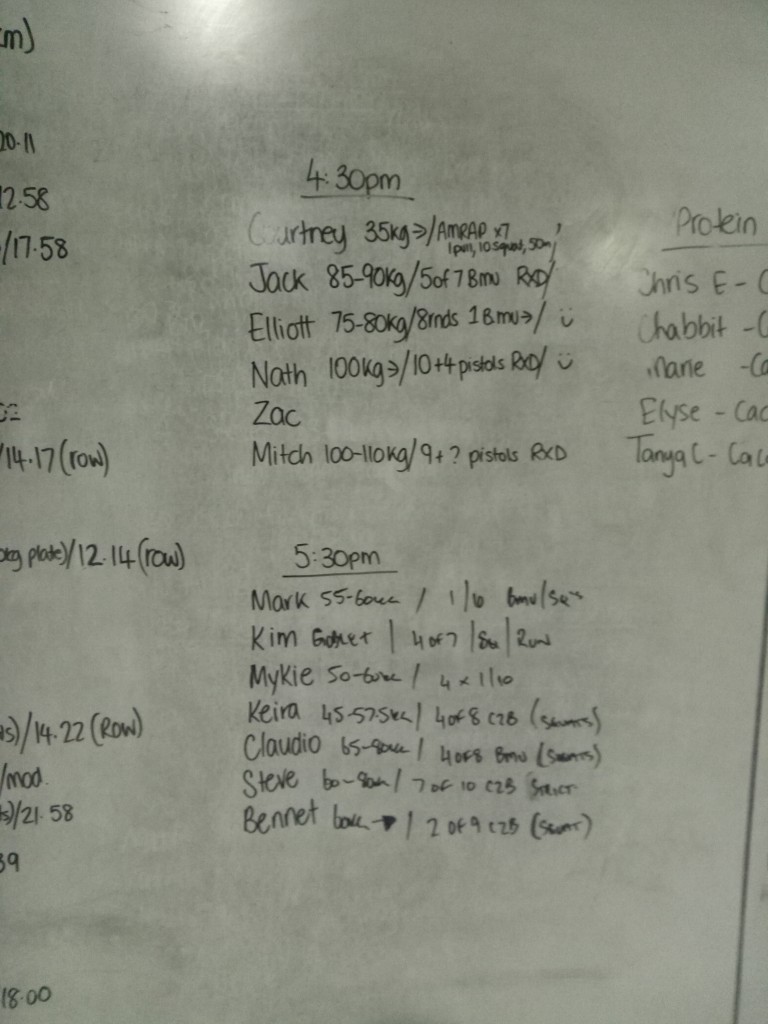 m)
20.11
12.58
/17.58
/14.17 (row)
plate)/12.14 (row)
s)/14.22 (ROW)
/mod.
s)/21.58
39
18.00
4:30pm
Courtney 35kg→/AMRAP x7
1 pull, 10 squat, 50m
Jack 85-90kg/5 of 7 Bmu RXD/
Elliott 75-80kg/8rnds 1 Bmu→/ ü
Nath 100kg→/10+4 pistols RxD/ ü
Zac
Mitch 100-110kg/9+? pistols RXD
5:30pm
Mark 55-60kg / 1/10 bmu/
Kim / 4 of 7 / / Run
Mykie 50-60kg / 4 x 1/10
Keira 45-57.5kg / 4 of 8 C2B
Claudio 65-80kg / 4 of 8 Bmu
Steve 60-80kg / 7 of 10 C2B Strict
Bennet 60kg → / 2 of 9 C2B
Protein
Chris E - C
Chabbit - C
- Ca
Elyse - Cac
Tanya C - Cac